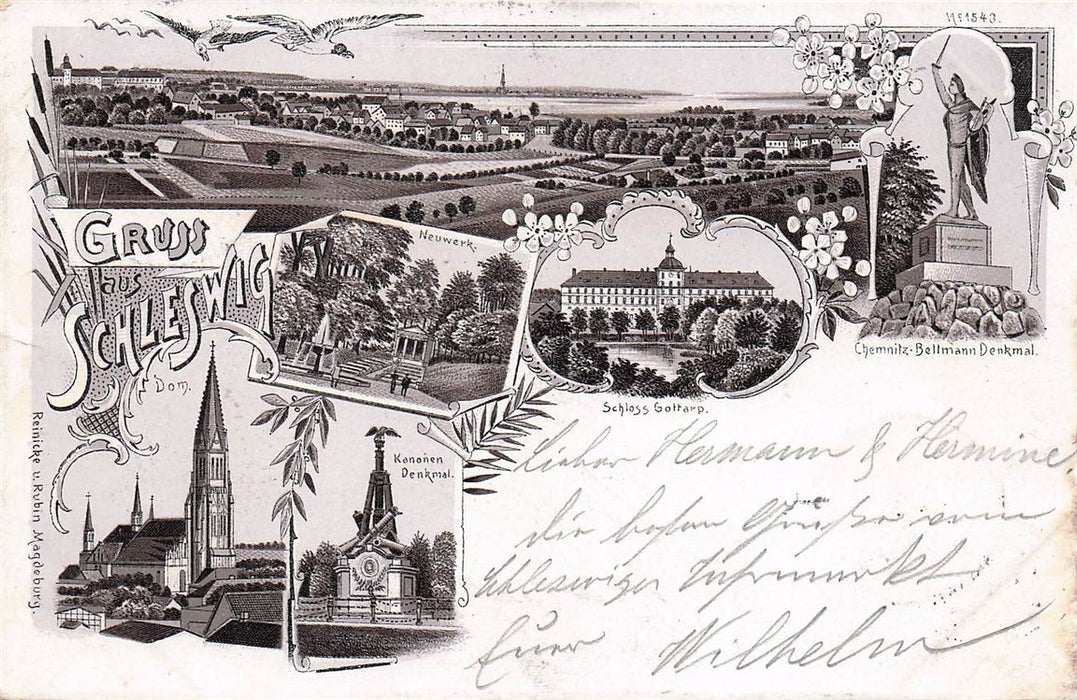 Nº 1543.
GRUSS
aus
SCHLESWIG
Neuwerk.
Chemnitz-Bellmann Denkmal.
Schloss Gottarp.
Dom.
Kanonen
Denkmal.
Reinicke u. Rubin Magdeburg.
Lieber Hermann & Hermine
die besten Grüße vom
Schleswiger Jahrmarkt
Euer Wilhelm